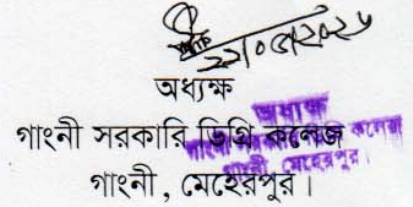 অধ্যক্ষ
গাংনী সরকারি ডিগ্রি কলেজ
গাংনী, মেহেরপুর।
অধ্যক্ষ
গাংনী সরকারি ডিগ্রি কলেজ
গাংনী মেহেরপুর।